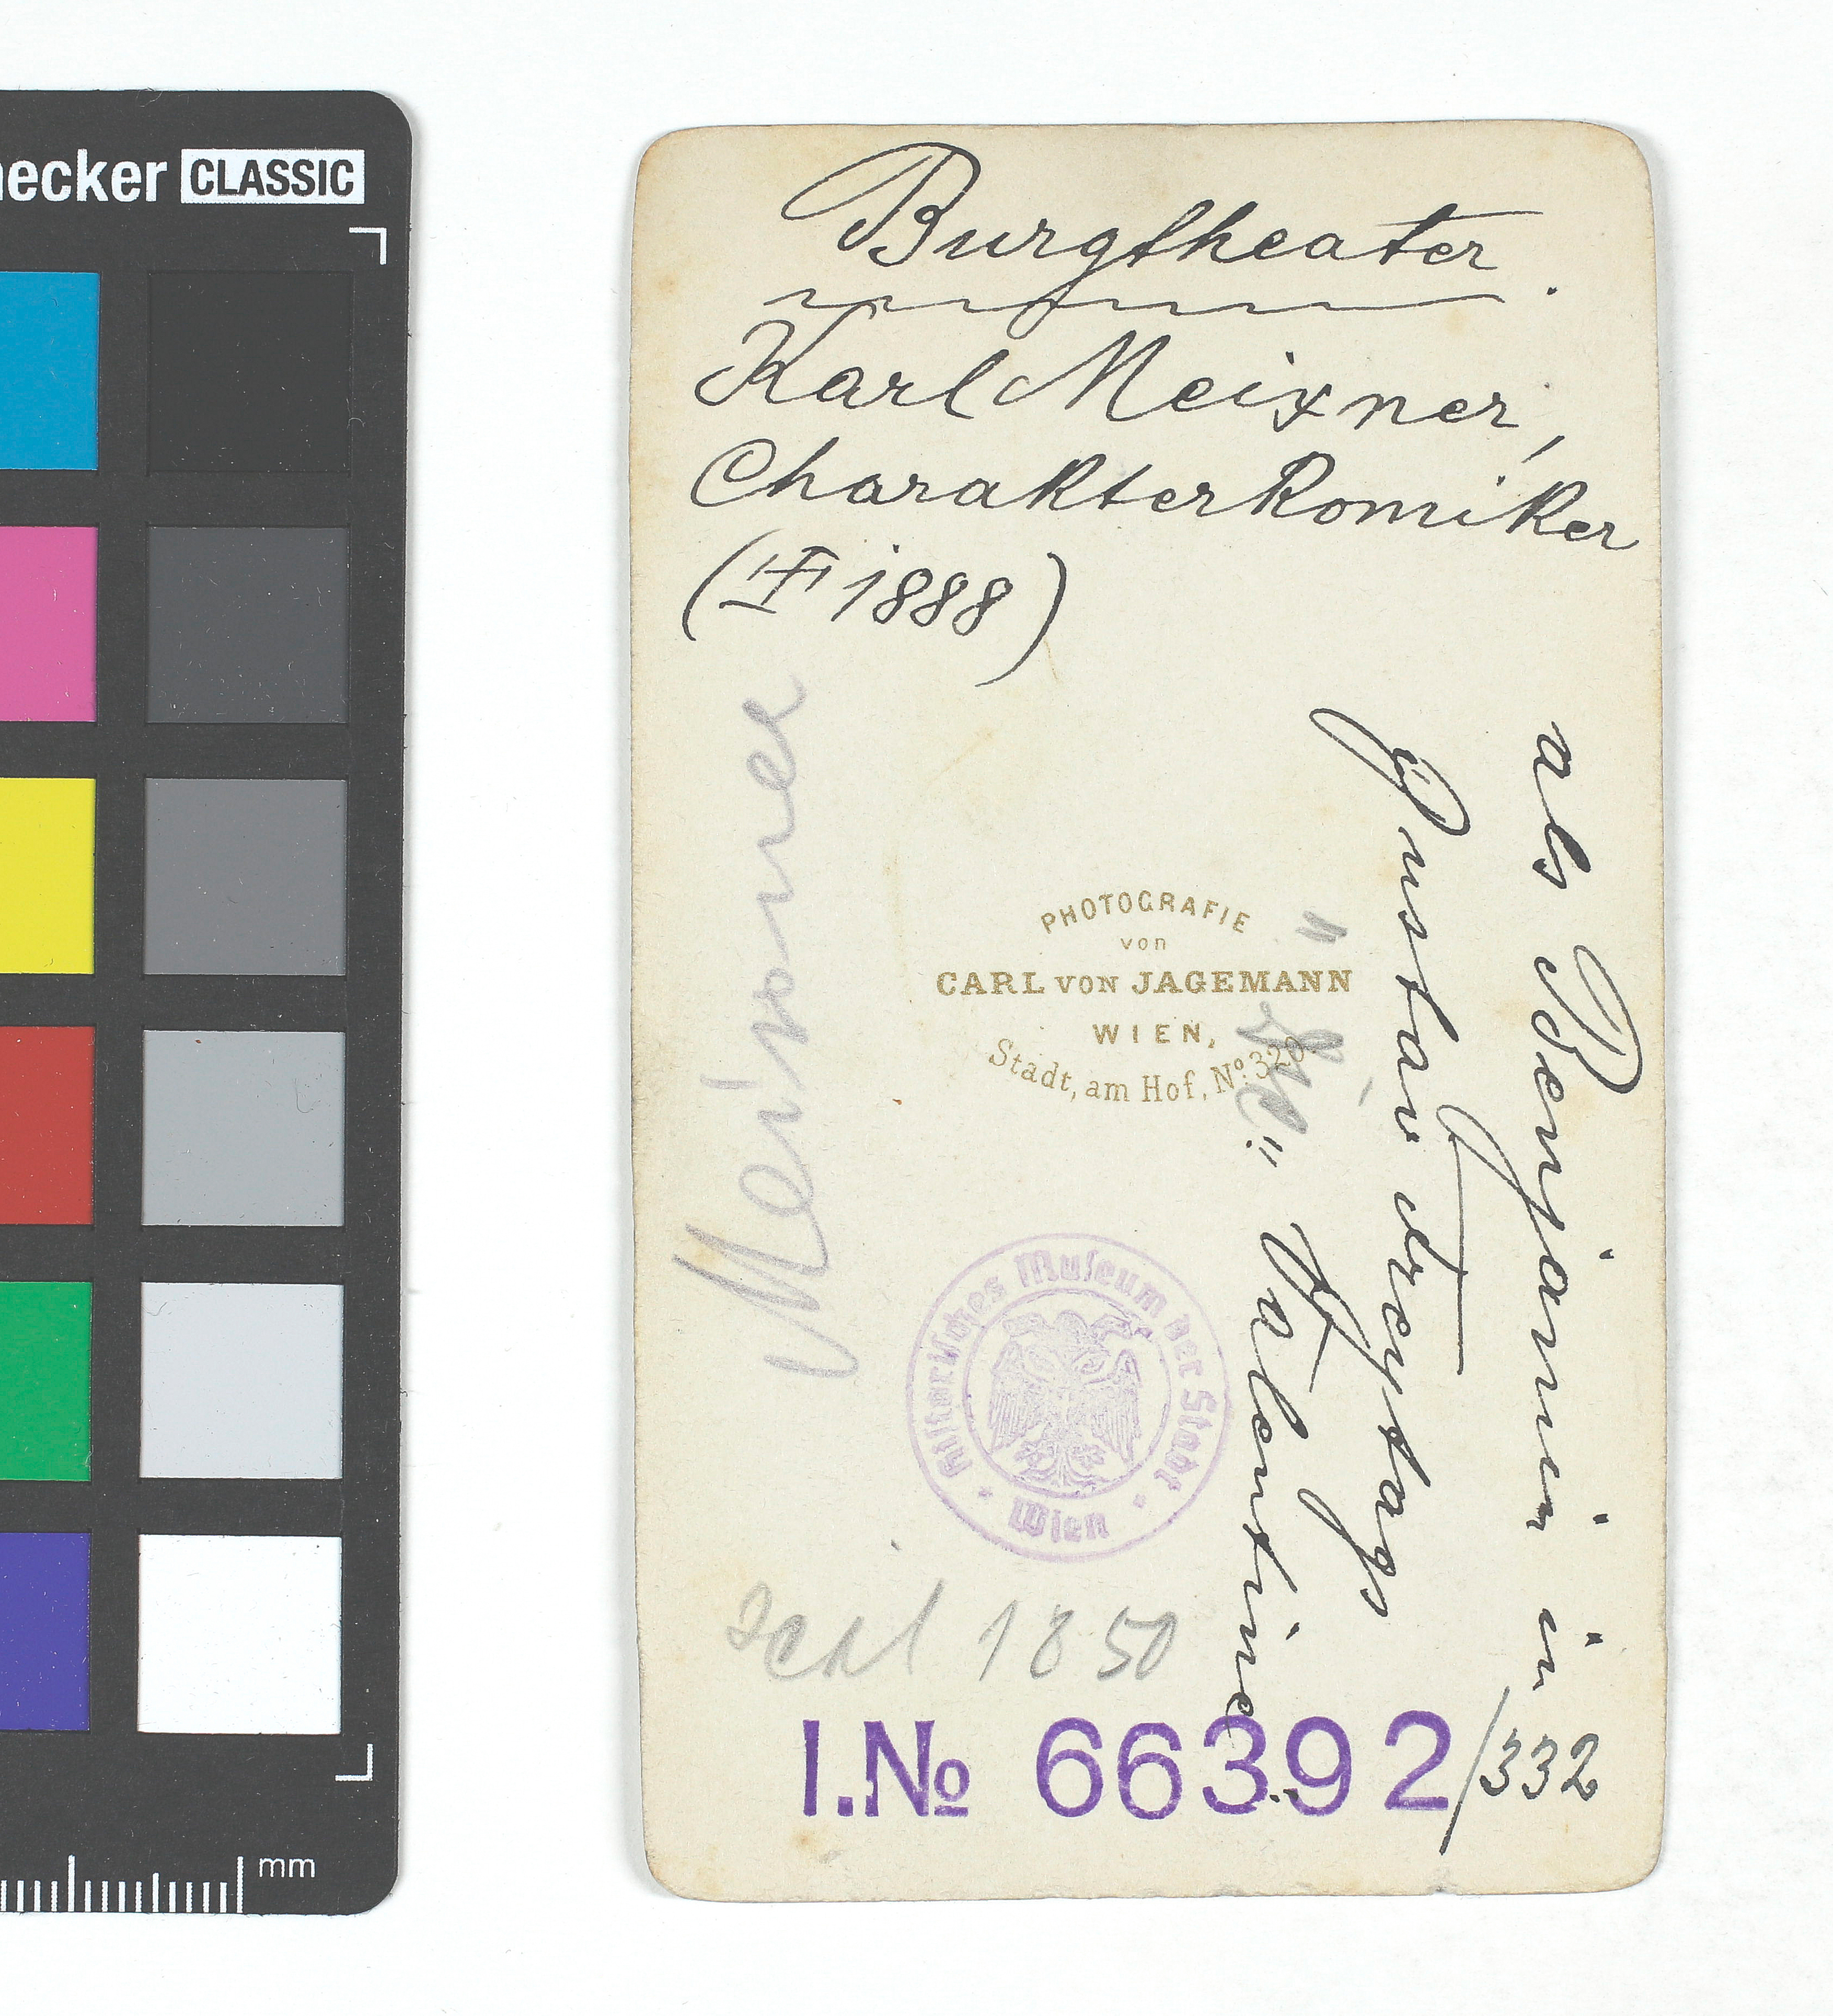 ecker CLASSIC
mm
Burgtheater.
Karl Meixner,
Charakterkomiker
(† 1888)
als Benjamin in
Gustav Freytags
"Valentine"
Meixner
PHOTOGRAFIE
von
CARL VON JAGEMANN
WIEN,
Stadt, am Hof, No. 320.
Historisches Museum der Stadt
Wien
1850
I.No 66392/332